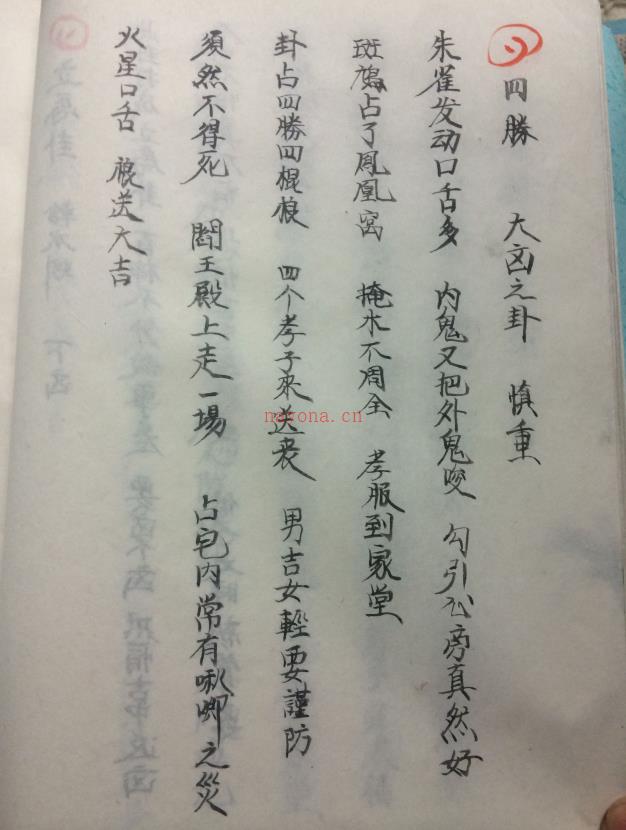 四勝 大凶之卦 慎重
朱雀发动口舌多 内鬼又把外鬼咬 勾引 旁真然好
斑鸠占了鳳凰窩 掩水不周全 孝服到家堂
卦占四勝四棍狼 四个孝子來送丧 男吉女輕要謹防
須然不得死 閻王殿上走一場 占宅内常有啾唧之災
火星口舌 禳送大吉
nayona.cn